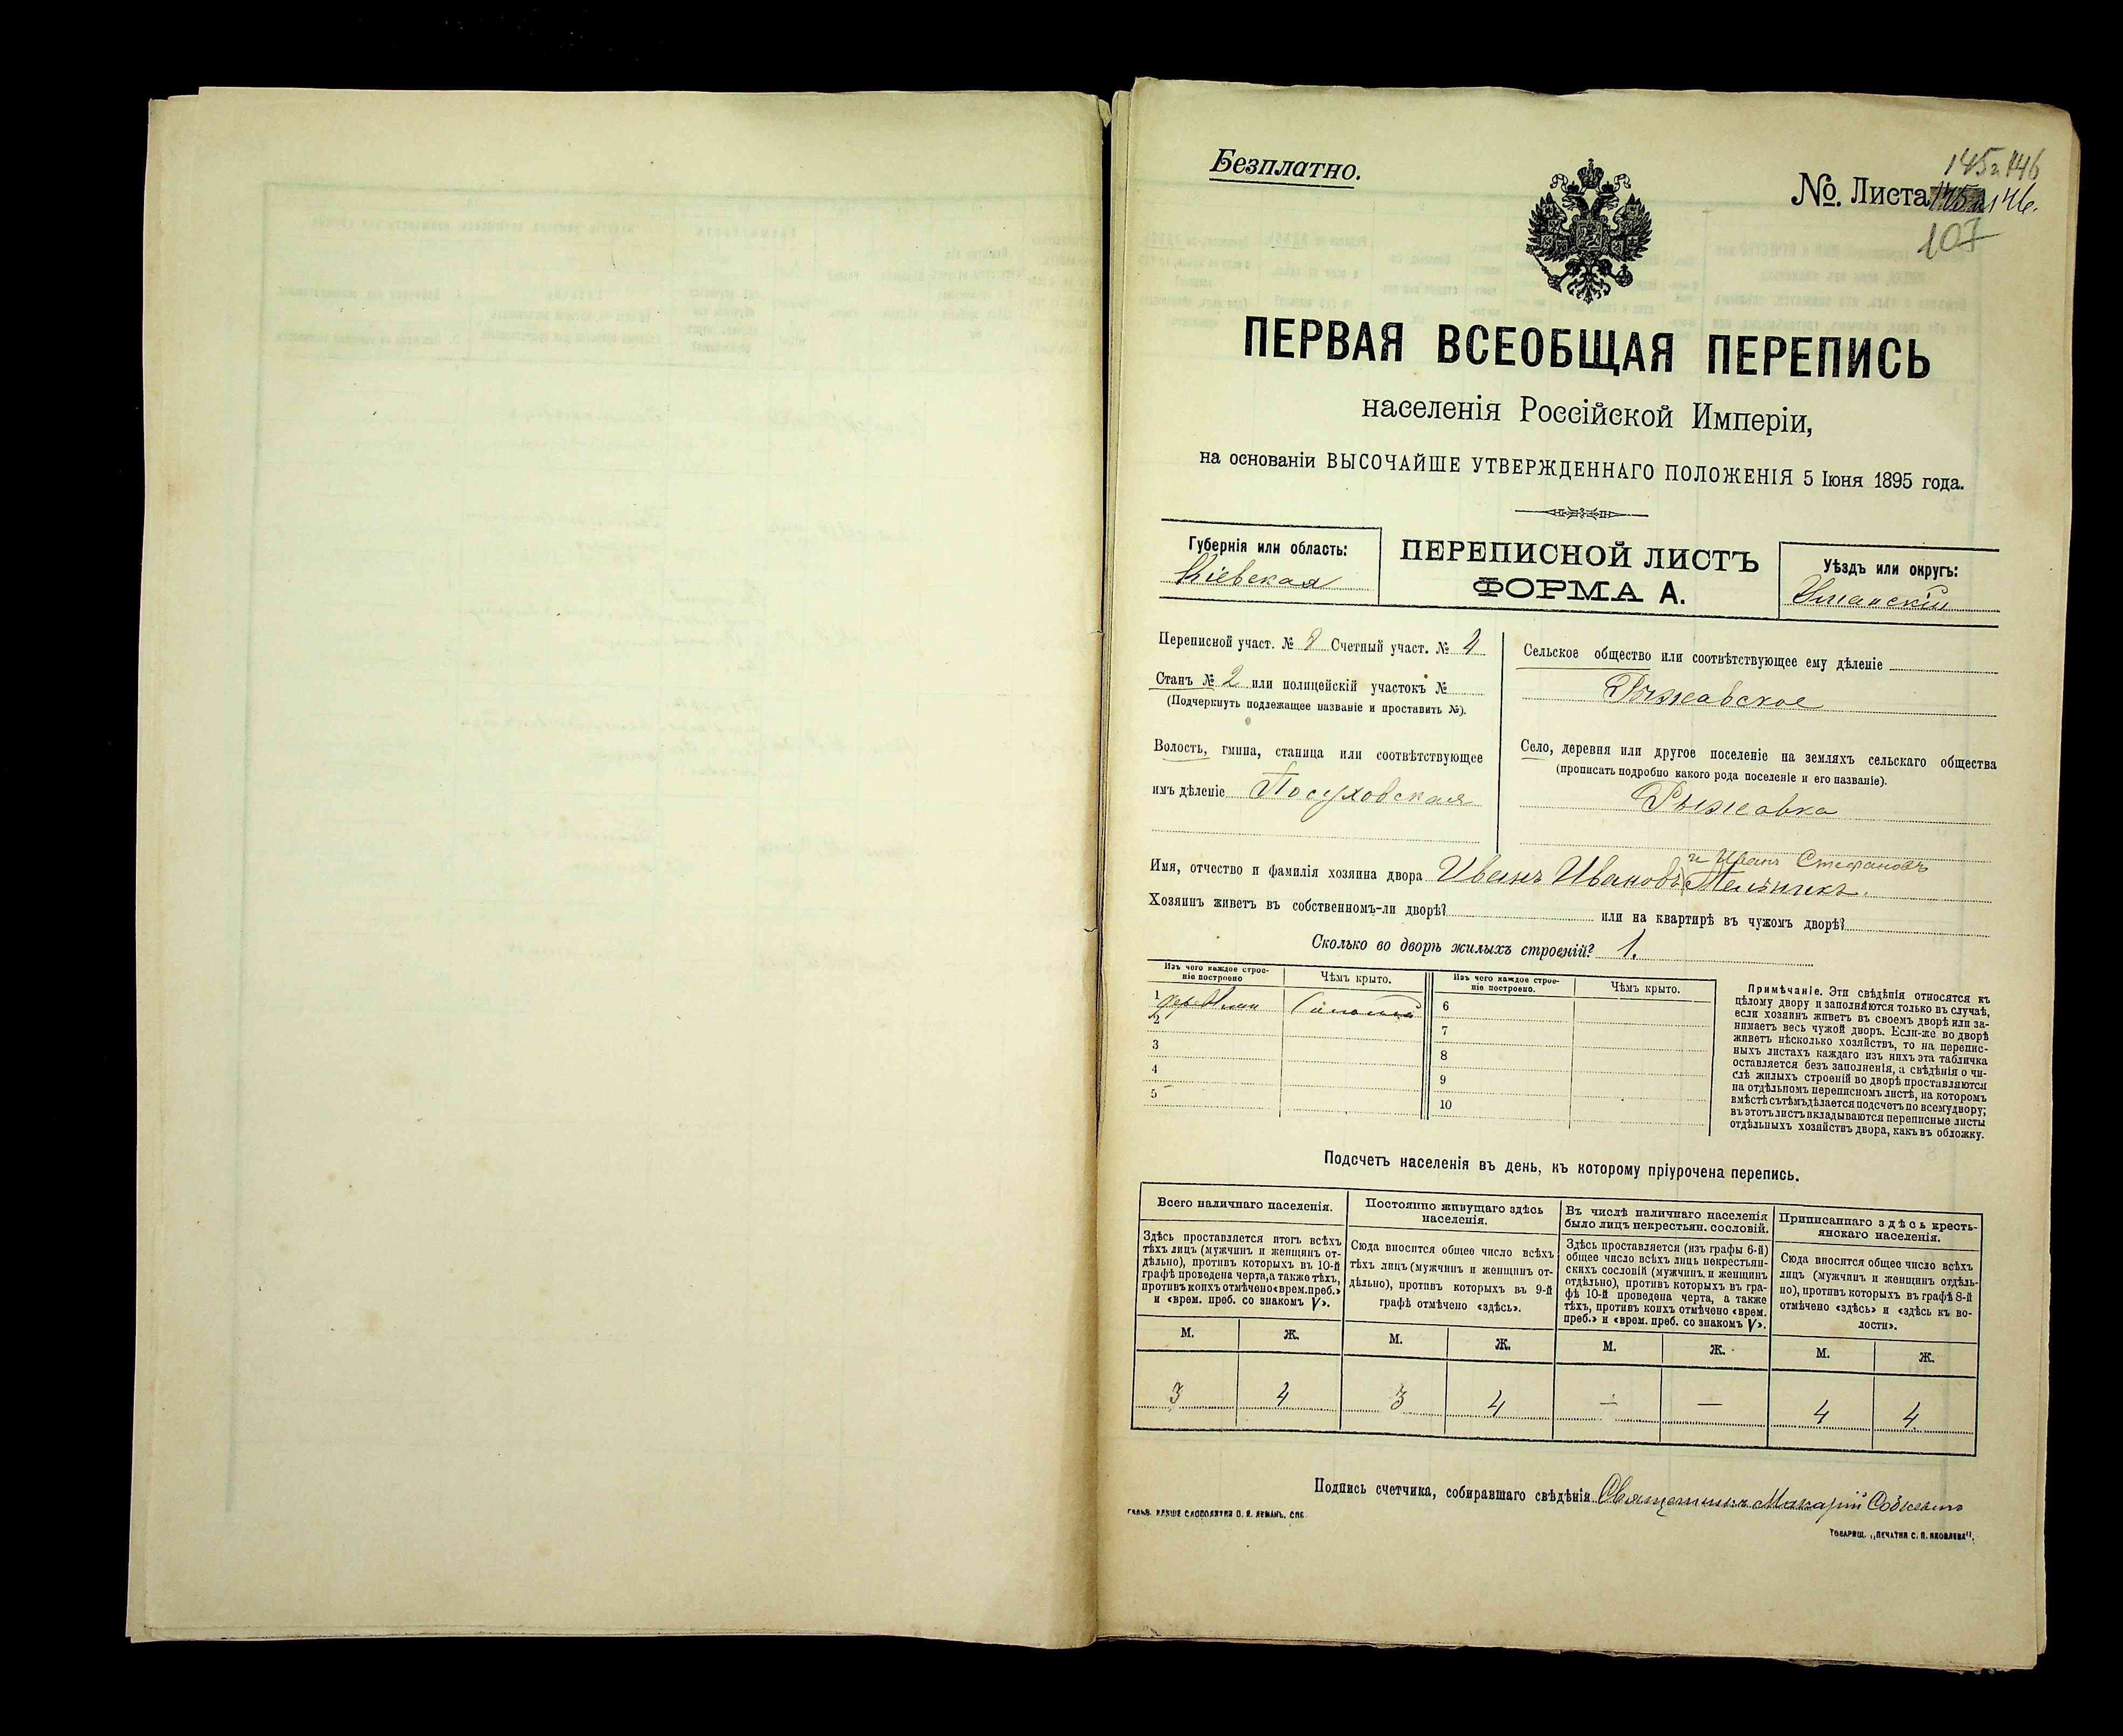 Безплатно.
145 и 146
№. Листа 146.
107
ПЕРВАЯ ВСЕОБЩАЯ ПЕРЕПИСЬ
населенія Россійской Имперіи,
на основаніи ВЫСОЧАЙШЕ УТВЕРЖДЕННАГО ПОЛОЖЕНІЯ 5 Іюня 1895 года.
Губернія или область:
Кіевская
ПЕРЕПИСНОЙ ЛИСТЪ
ФОРМА А.
Уѣздъ или округъ:
Уманскій
Переписной участ. № Счетный участ. № 4
Станъ № 2 или полицейскій участокъ №
(Подчеркнуть подлежащее названіе и проставить №).
Волость, гмина, станица или соотвѣтствующее
имъ дѣленіе Посуховская
Сельское общество или соотвѣтствующее ему дѣленіе
Рыжавское
Село, деревня или другое поселеніе на земляхъ сельскаго общества
(прописать подробно какого рода поселеніе и его названіе).
Рыжавка
и Иванъ Стефановъ
Имя, отчество и фамилія хозяина двора Иванъ Ивановъ Мельникъ.
Хозяинъ живетъ въ собственномъ-ли дворѣ? или на квартирѣ въ чужомъ дворѣ?
Сколько во дворѣ жилыхъ строеній? 1.
Изъ чего каждое строе-
ніе построено
Чѣмъ крыто.
Изъ чего каждое строе-
ніе построено.
Чѣмъ крыто.
1 Соломой
2
3
4
5
6
7
8
9
10
Примѣчаніе. Эти свѣдѣнія относятся къ
цѣлому двору и заполняются только въ случаѣ,
если хозяинъ живетъ въ своемъ дворѣ или за-
нимаетъ весь чужой дворъ. Если-же во дворѣ
живетъ нѣсколько хозяйствъ, то на перепис-
ныхъ листахъ каждаго изъ нихъ эта табличка
оставляется безъ заполненія, а свѣдѣнія о чи-
слѣ жилыхъ строеній во дворѣ проставляются
на отдѣльномъ переписномъ листѣ, на которомъ
вмѣстѣ съ тѣмъ дѣлается подсчетъ по всему двору;
въ этотъ листъ вкладываются переписные листы
отдѣльныхъ хозяйствъ двора, какъ въ обложку.
Подсчетъ населенія въ день, къ которому пріурочена перепись.
Всего наличнаго населенія.
Здѣсь проставляется итогъ всѣхъ
тѣхъ лицъ (мужчинъ и женщинъ от-
дѣльно), противъ которыхъ въ 10-й
графѣ проведена черта, а также тѣхъ,
противъ коихъ отмѣчено «врем. преб.»
и «врем. преб. со знакомъ V».
Постоянно живущаго здѣсь
населенія.
Сюда вносится общее число всѣхъ
тѣхъ лицъ (мужчинъ и женщинъ от-
дѣльно), противъ которыхъ въ 9-й
графѣ отмѣчено «здѣсь».
Въ числѣ наличнаго населенія
было лицъ некрестьян. сословій.
Здѣсь проставляется (изъ графы 6-й)
общее число всѣхъ лицъ некрестьян-
скихъ сословій (мужчинъ и женщинъ
отдѣльно), противъ которыхъ въ гра-
фѣ 10-й проведена черта, а также
тѣхъ, противъ коихъ отмѣчено «врем.
преб.» и «врем. преб. со знакомъ V».
Приписаннаго здѣсь кресть-
янскаго населенія.
Сюда вносится общее число всѣхъ
лицъ (мужчинъ и женщинъ отдѣль-
но), противъ которыхъ въ графѣ 8-й
отмѣчено «здѣсь» и «здѣсь къ во-
лости».
М. Ж. М. Ж. М. Ж. М. Ж.
3 4 3 4 — — 4 4
Подпись счетчика, собиравшаго свѣдѣнія Священникъ Макарій
СЛОВОЛИТНИ О. И. ЛЕМАНЪ, СПБ.
ТОВАРИЩ. „ПЕЧАТНЯ С. П. ЯКОВЛЕВА".